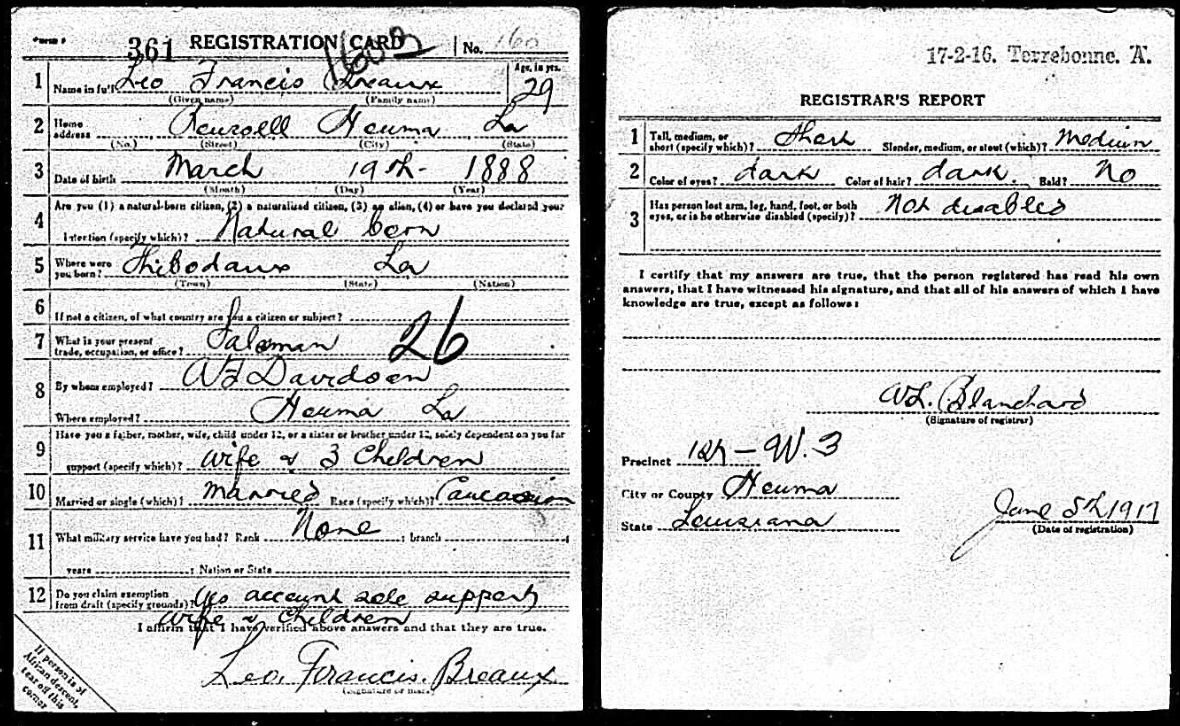 Form 1 361 REGISTRATION CARD No. 160
1 Name in full Leo Francis Breaux Age, in yrs. 29
(Given name) (Family name)
2 Home address Houma La
(No.) (Street) (City) (State)
3 Date of birth March 19th- 1888
(Month) (Day) (Year)
4 Are you (1) a natural-born citizen, (2) a naturalized citizen, (3) an alien, (4) or have you declared your
intention (specify which)? Natural born
5 Where were you born? Thibodaux La
(Town) (State) (Nation)
6 If not a citizen, of what country are you a citizen or subject?
7 What is your present trade, occupation, or office? Salesman 26
8 By whom employed? Davidson
Where employed? Houma La
9 Have you a father, mother, wife, child under 12, or a sister or brother under 12, solely dependent on you for
support (specify which)? wife & 3 Children
10 Married or single (which)? Married Race (specify which)? Caucasian
11 What military service have you had? Rank None ; branch ;
years ; Nation or State
12 Do you claim exemption from draft (specify grounds)? Yes account sole support
wife & Children
I affirm that I have verified above answers and that they are true.
Leo, Francis. Breaux
(Signature or mark)
If person is of
African descent,
tear off this
corner
17-2-16. Terrebonne. A.
REGISTRAR'S REPORT
1 Tall, medium, or short (specify which)? Short Slender, medium, or stout (which)? Medium
2 Color of eyes? dark Color of hair? dark. Bald? No
3 Has person lost arm, leg, hand, foot, or both eyes, or is he otherwise disabled (specify)? Not disabled
I certify that my answers are true, that the person registered has read his own
answers, that I have witnessed his signature, and that all of his answers of which I have
knowledge are true, except as follows:
Blanchard
(Signature of registrar)
Precinct W. 3
City or County Houma
State Louisiana
June 5th 1917
(Date of registration)